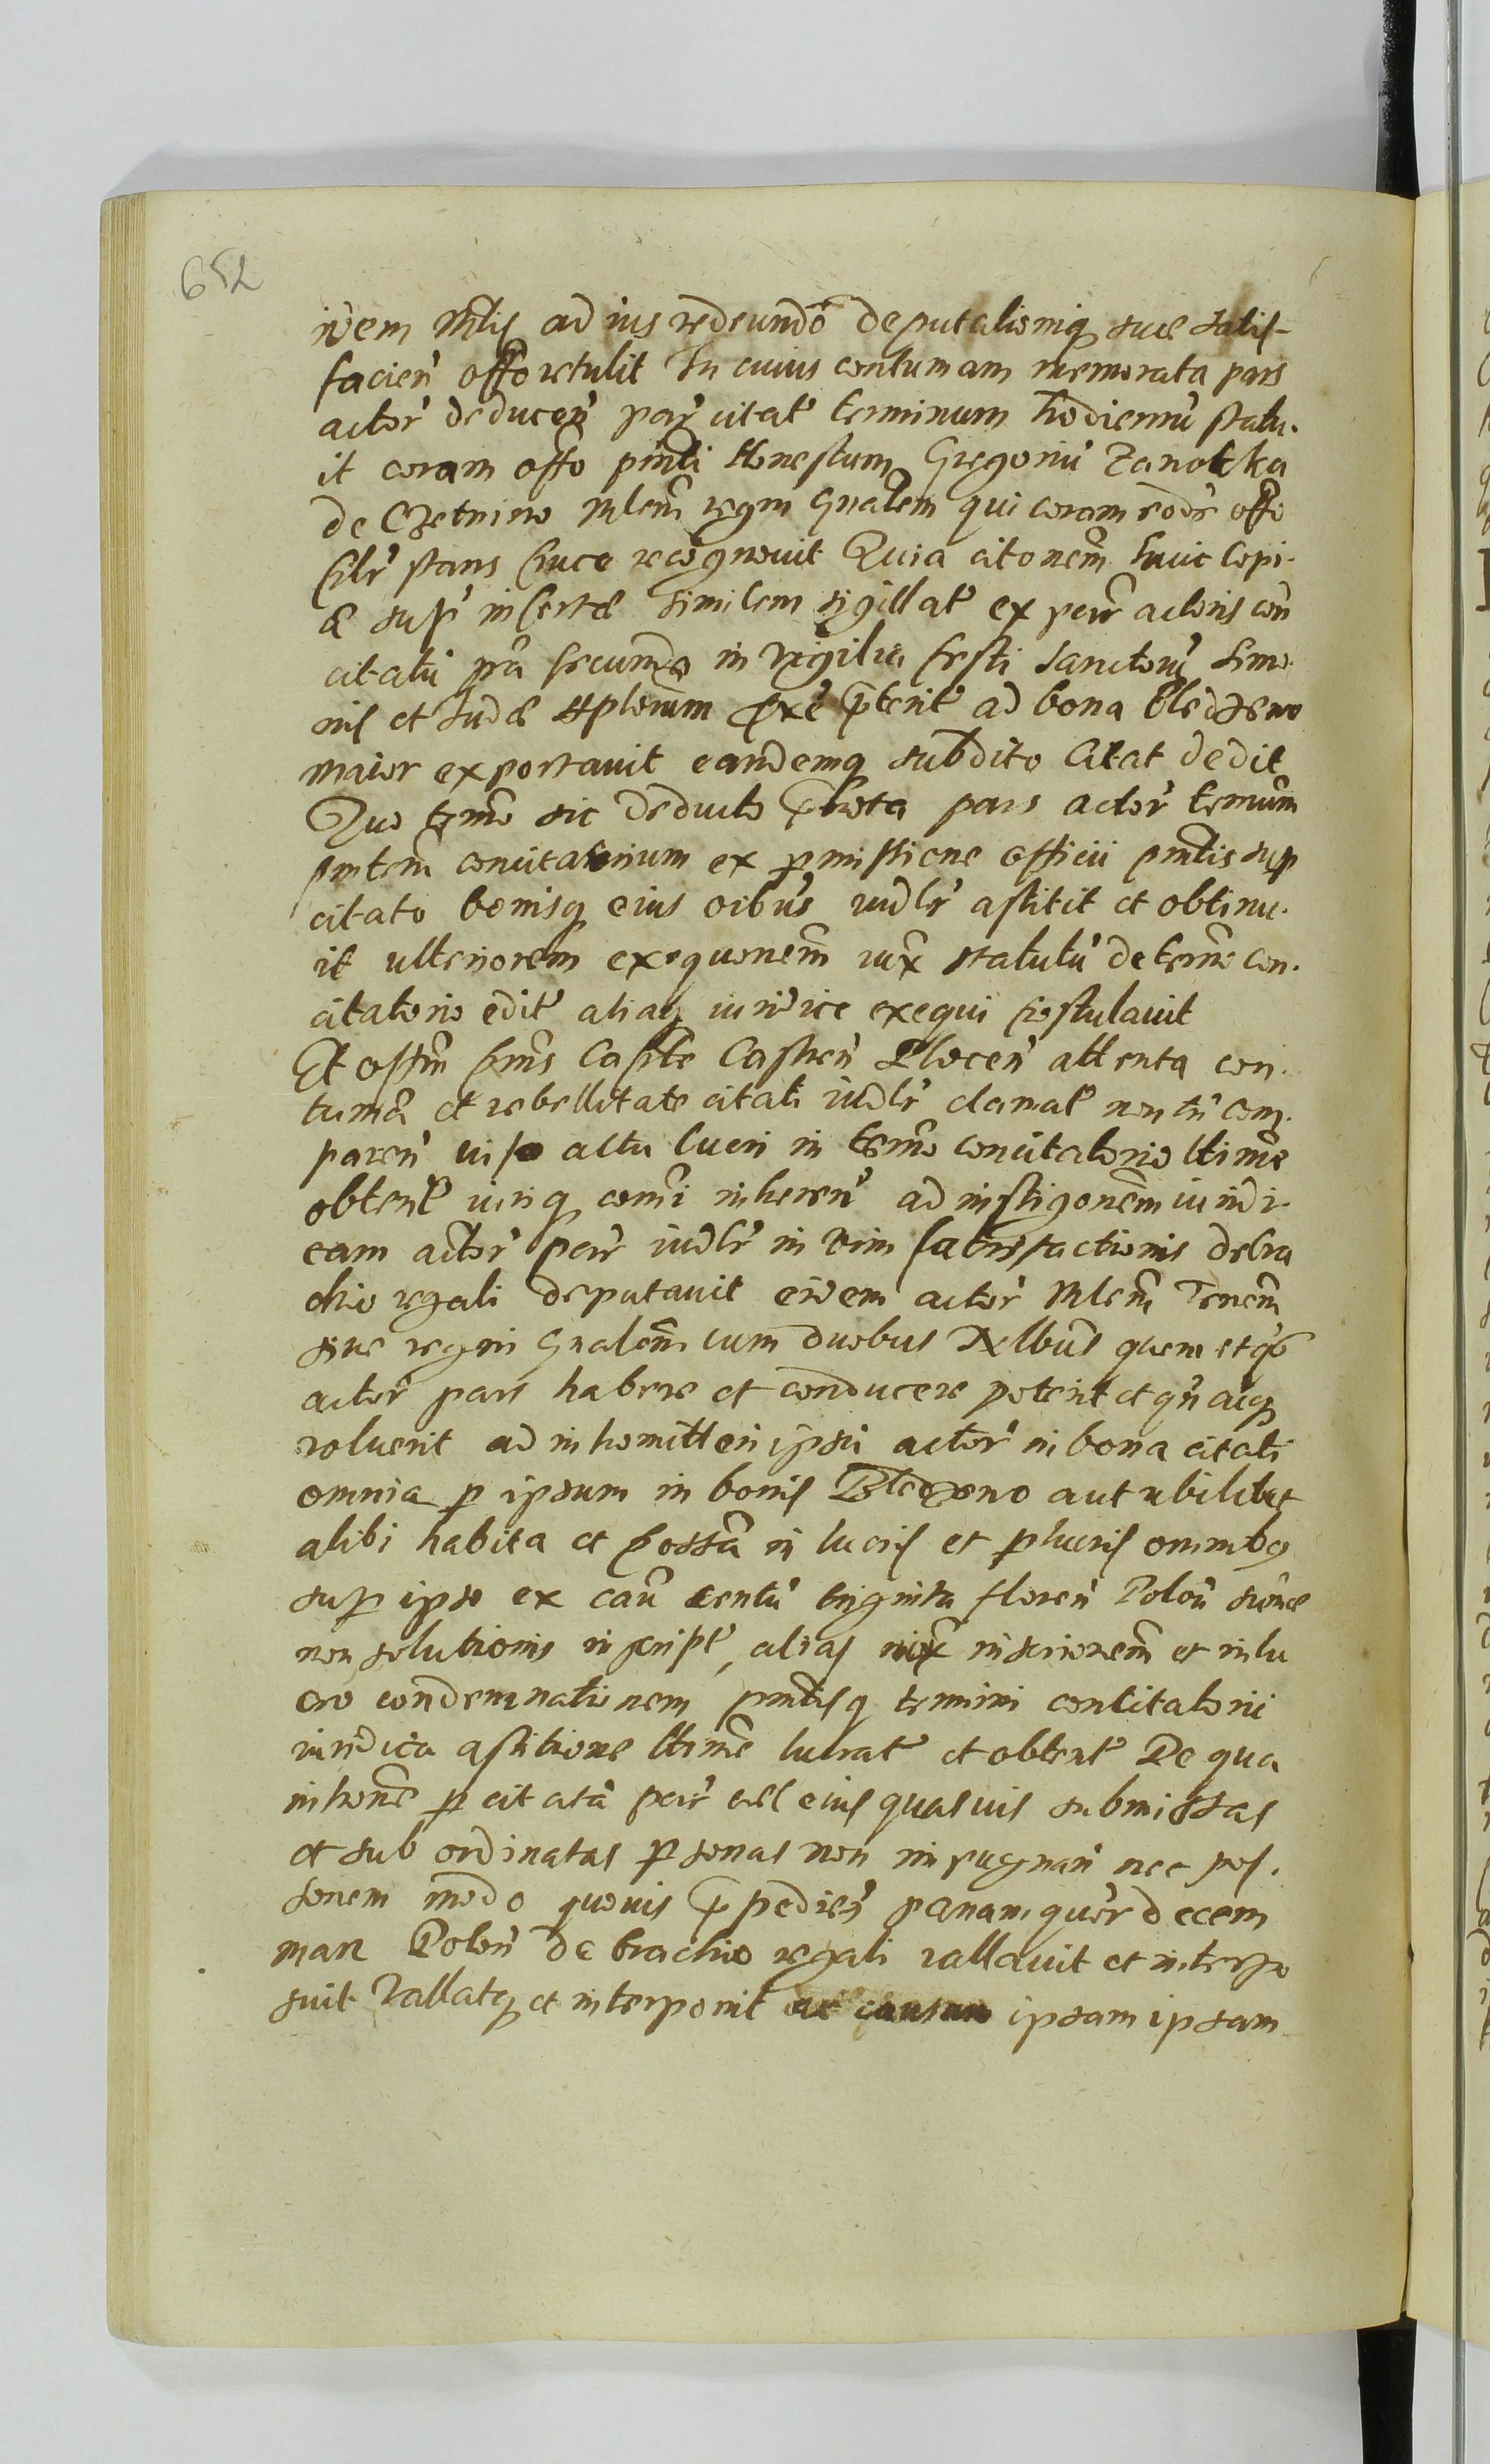 652
idem Mtis ad ius redeundo deputationiq suae satis-
facien offo retulit In cuius contumam memorata pars
actor deducen par citat terminum hodiernu statu-
it coram offo pnti Honestum Gregoriu Zanotka
de Czetnino Mlem regni Gnalem qui coram eode offo
plr stans sluce recognovit Quia citonem huic copi-
æ supr insertæ similem sigillat ex parte actoris con
citatu pn secunda in vigilia festi Sanctoru Simo-
nis et Judæ Aplorum prxe prterit ad bona Bledzeno
maior exportavit eandemq subdito Citat dedit
Quo termo sic deducto prfata pars actor termum
pntem concitatorium ex pmissione officii pntis sup
citato bonisq eius oibus iudlr astitit et obtinu-
it ulteriorem exequonem iux statutu de termo con-
citatorio edit aliaq iuridice exequi postulavit
Et offm pns Capite Castren Plocen attenta con-
tuma et rebellitate citati iudlr clamat non tn com-
paren viso actu lucri in termo concitatorio ltime
obtent iuriq comi inheren ad instigonem iuridi-
cam actor par iudlr in vim satisfactionis de bra
chio regali deputavit eidem actor Mlem Terrem
sive regni Gnalem cum duobus Nolbus quem et qs
actor pars habere et conducere poterit et qn aiq
voluerit ad inhomitten ipsu actor in bona citati
omnia p ipsum in bonis Bledzeno aut ubilibet
alibi habita et possa in lucris et plucris omnibq
sup ipso ex cau centu triginta floren Polon sumæ
non solutionis inscript, alias iux inscrionem et in lu
cro condemnationem pntisq termini concitatorii
iuridica astitione ltime lucrat et obtent De qua
inhone p citata par vel eius quasvis submissas
et subordinatas psonas non impugnan nec pos-
sonem modo quovis prpedien pœnam quor decem
marc Polon de brachio regali vallavit et interpo
suit Vallatq et interponit ac causam ipsam ipsam